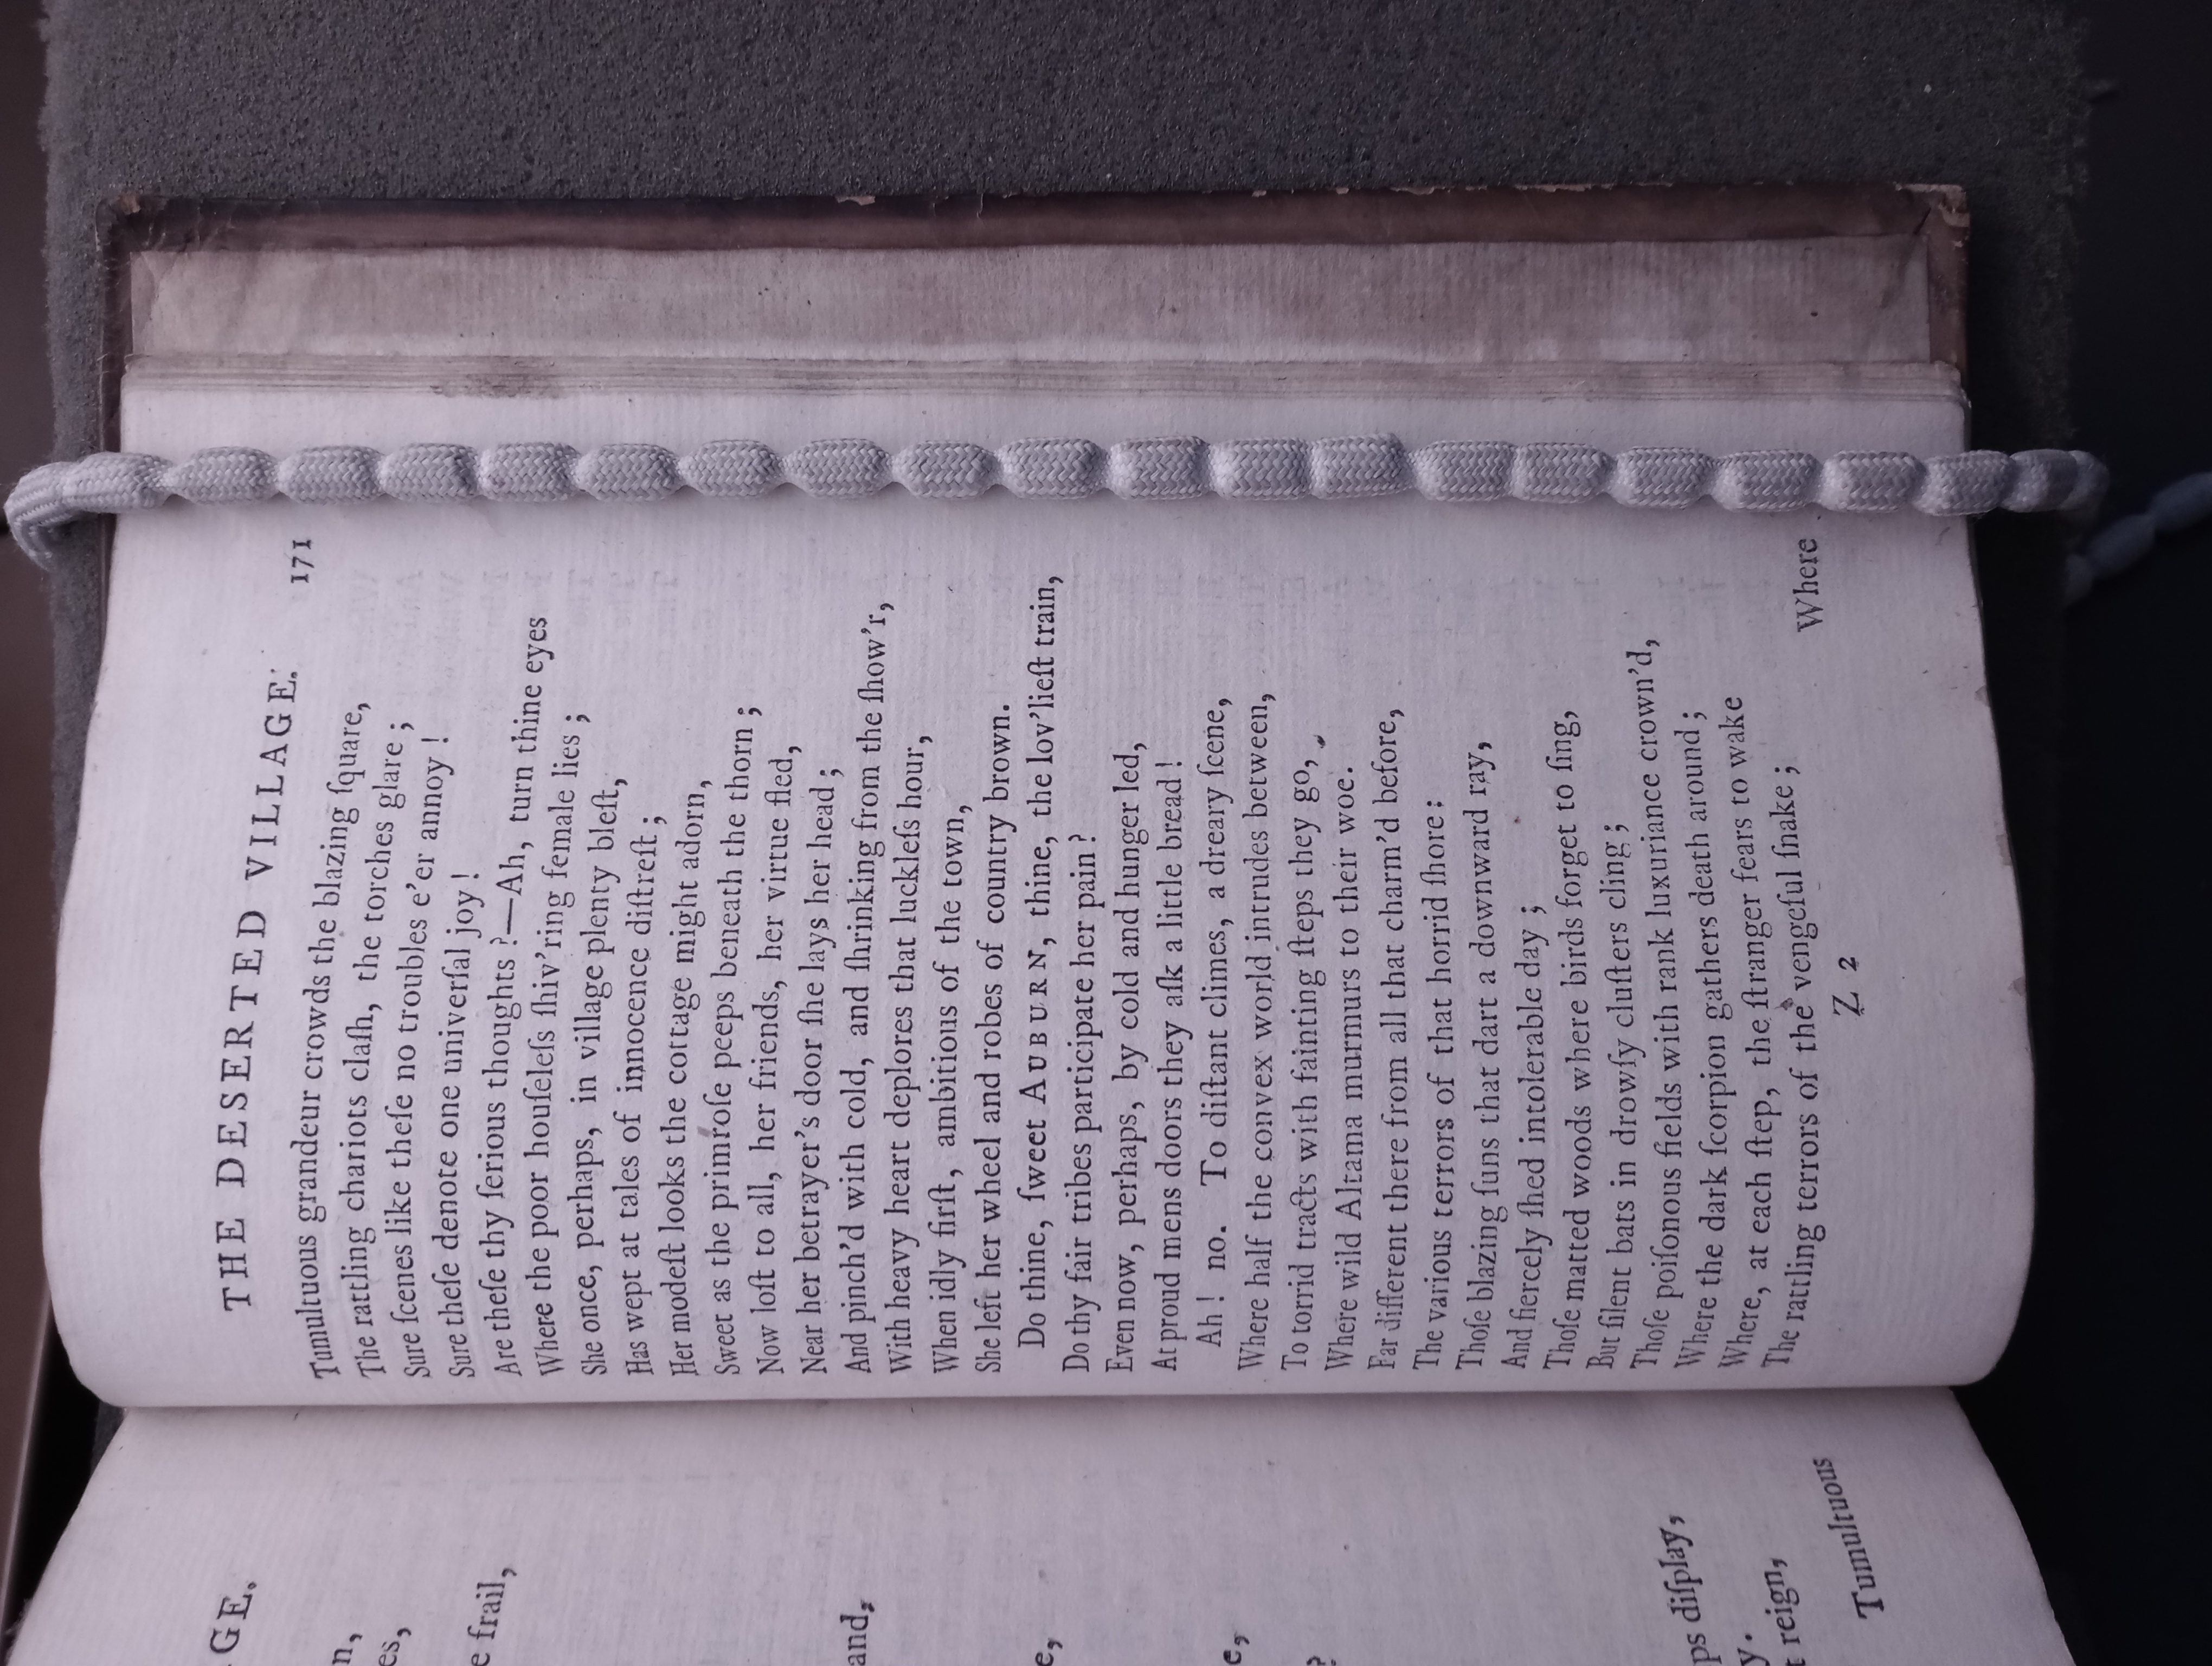 GE.
n,
es,
e frail,
and,
e,
e,
?
ps diſplay,
y.
t reign,
Tumultuous
THE DESERTED VILLAGE. 171
Tumultuous grandeur crowds the blazing ſquare,
The rattling chariots claſh, the torches glare;
Sure ſcenes like theſe no troubles e'er annoy!
Sure theſe denote one univerſal joy!
Are theſe thy ſerious thoughts?—Ah, turn thine eyes
Where the poor houſeleſs ſhiv'ring female lies;
She once, perhaps, in village plenty bleſt,
Has wept at tales of innocence diſtreſt;
Her modeſt looks the cottage might adorn,
Sweet as the primroſe peeps beneath the thorn;
Now loſt to all, her friends, her virtue fled,
Near her betrayer's door ſhe lays her head;
And pinch'd with cold, and ſhrinking from the ſhow'r,
With heavy heart deplores that luckleſs hour,
When idly firſt, ambitious of the town,
She left her wheel and robes of country brown.
Do thine, ſweet AUBURN, thine, the lov'lieſt train,
Do thy fair tribes participate her pain?
Even now, perhaps, by cold and hunger led,
At proud mens doors they aſk a little bread!
Ah! no. To diſtant climes, a dreary ſcene,
Where half the convex world intrudes between,
To torrid tracts with fainting ſteps they go,
Where wild Altama murmurs to their woe.
Far different there from all that charm'd before,
The various terrors of that horrid ſhore:
Thoſe blazing ſuns that dart a downward ray,
And fiercely ſhed intolerable day;
Thoſe matted woods where birds forget to ſing,
But ſilent bats in drowſy cluſters cling;
Thoſe poiſonous fields with rank luxuriance crown'd,
Where the dark ſcorpion gathers death around;
Where, at each ſtep, the ſtranger fears to wake
The rattling terrors of the vengeful ſnake;
Z 2
Where